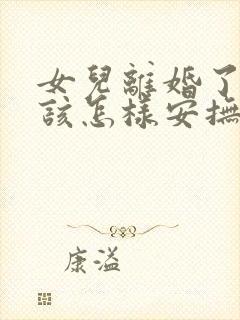 女兒離婚了
該怎樣安撫
康溢